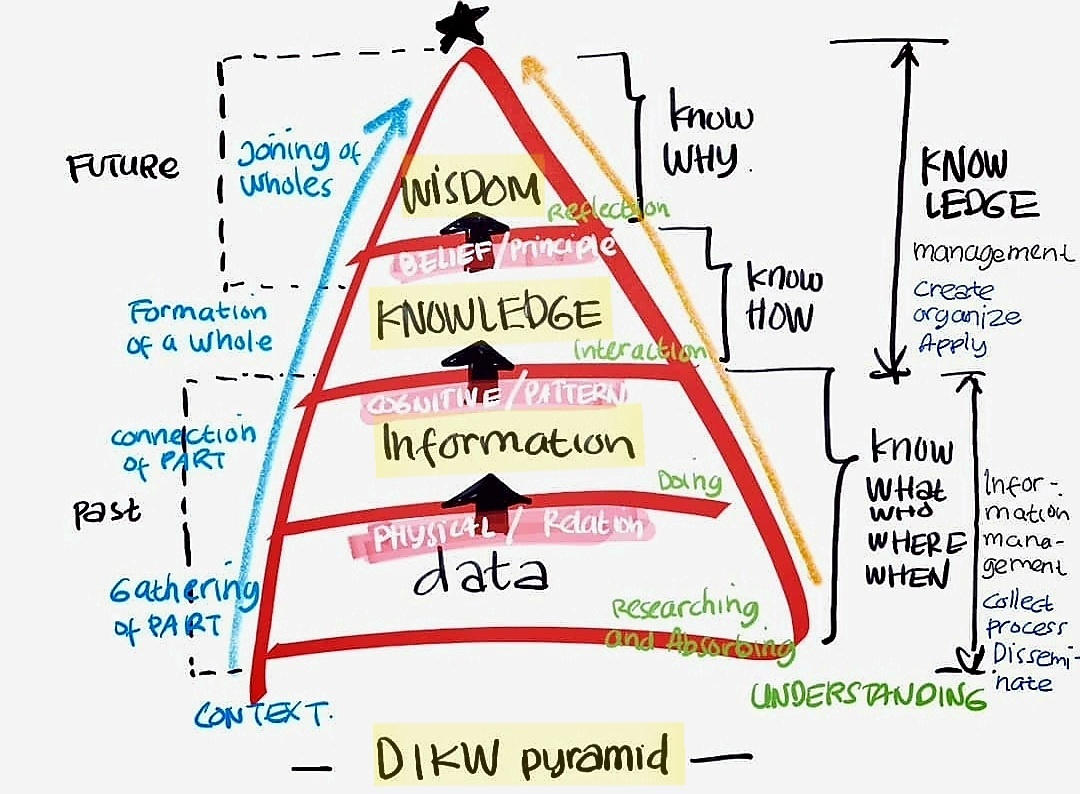 FUTURE
Joining of
wholes
WISDOM
Reflection
BELIEF/Principle
know
WHY.
KNOW
LEDGE
management
create
organize
Apply
Formation
of a whole
KNOWLEDGE
Interaction
COGNITIVE/PATTERN
know
HOW
connection
of PART
Past
Information
Doing
PHYSICAL/ Relation
KNOW
WHat
WHO
WHERE
WHEN
Infor-
mation
mana-
gement
collect
process
Dissemi-
nate
Gathering
of PART
data
Researching
and Absorbing
CONTEXT.
UNDERSTANDING
— DIKW pyramid —